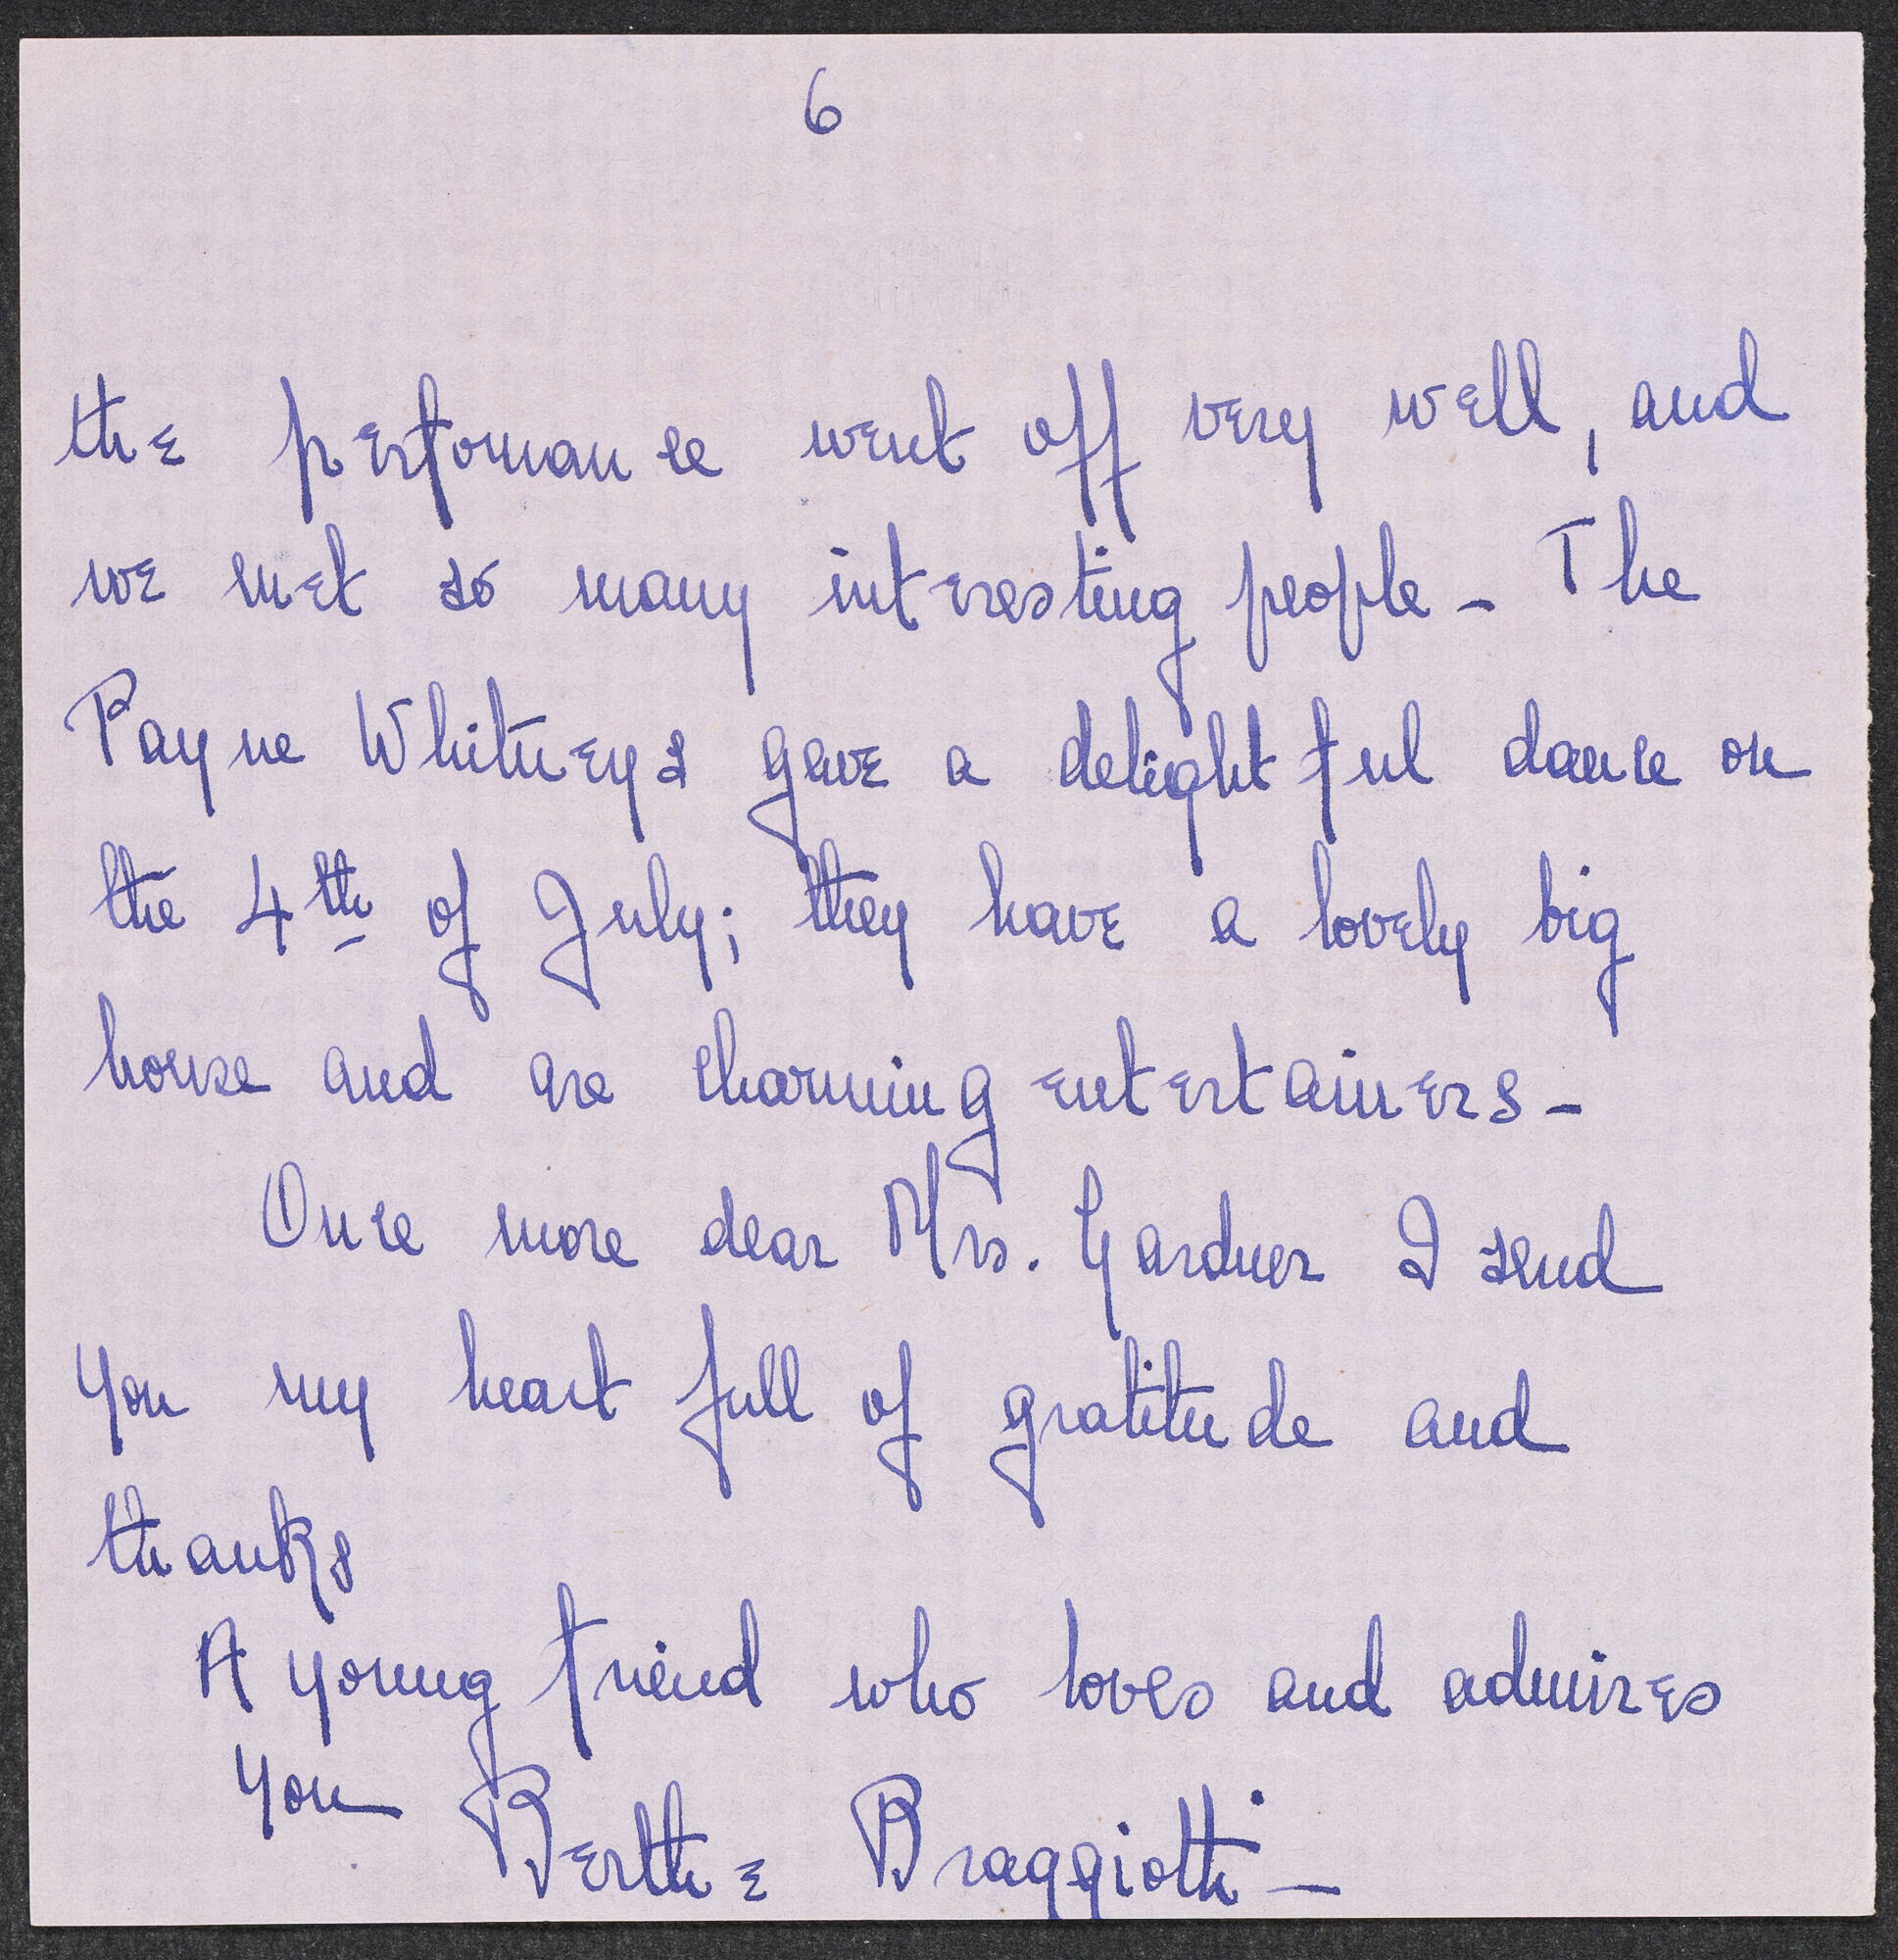 6
the perfomance went off very well, and
we met so many interesting people - The
Payne Whitneys gave a delightful dance on
the 4th of July; they have a lovely big
house and are charming entertainers -
Once more dear Mrs. Gardner I send
you my heart full of gratitude and
thanks
A young friend who loves and admires
you
Berthe Braggiotti -